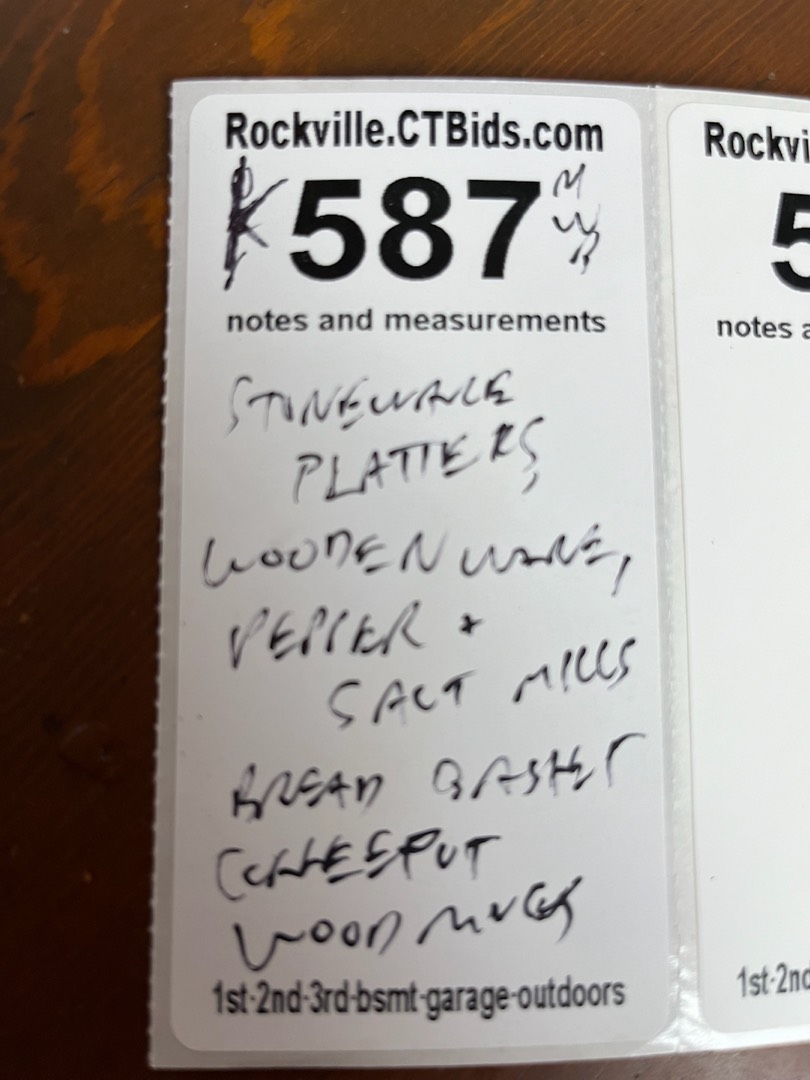 Rockville.CTBids.com
K 587 MWB
notes and measurements
STONEWARE
PLATTERS,
WOODENWARE,
PEPPER +
SALT MILLS
BREAD BASKET
COFFEEPOT
WOOD MUGS
1st-2nd-3rd-bsmt-garage-outdoors
Rockvi
5
notes a
1st-2nd